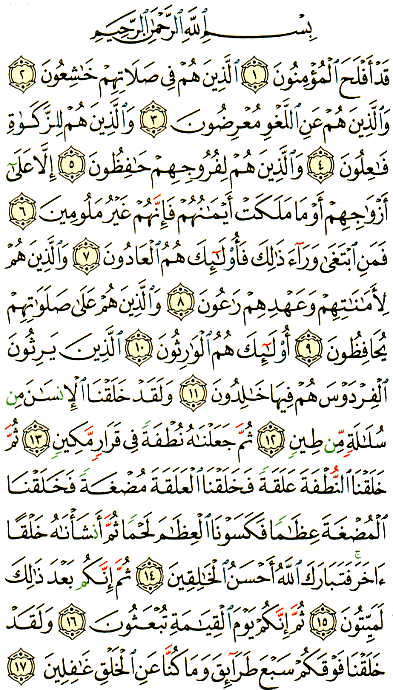 بِسْمِ ٱللَّهِ ٱلرَّحْمَٰنِ ٱلرَّحِيمِ
قَدْ أَفْلَحَ ٱلْمُؤْمِنُونَ ١ ٱلَّذِينَ هُمْ فِى صَلَاتِهِمْ خَٰشِعُونَ ٢
وَٱلَّذِينَ هُمْ عَنِ ٱللَّغْوِ مُعْرِضُونَ ٣ وَٱلَّذِينَ هُمْ لِلزَّكَوٰةِ
فَٰعِلُونَ ٤ وَٱلَّذِينَ هُمْ لِفُرُوجِهِمْ حَٰفِظُونَ ٥ إِلَّا عَلَىٰٓ
أَزْوَٰجِهِمْ أَوْ مَا مَلَكَتْ أَيْمَٰنُهُمْ فَإِنَّهُمْ غَيْرُ مَلُومِينَ ٦
فَمَنِ ٱبْتَغَىٰ وَرَآءَ ذَٰلِكَ فَأُو۟لَٰٓئِكَ هُمُ ٱلْعَادُونَ ٧ وَٱلَّذِينَ هُمْ
لِأَمَٰنَٰتِهِمْ وَعَهْدِهِمْ رَٰعُونَ ٨ وَٱلَّذِينَ هُمْ عَلَىٰ صَلَوَٰتِهِمْ
يُحَافِظُونَ ٩ أُو۟لَٰٓئِكَ هُمُ ٱلْوَٰرِثُونَ ١٠ ٱلَّذِينَ يَرِثُونَ
ٱلْفِرْدَوْسَ هُمْ فِيهَا خَٰلِدُونَ ١١ وَلَقَدْ خَلَقْنَا ٱلْإِنسَٰنَ مِن
سُلَٰلَةٍ مِّن طِينٍ ١٢ ثُمَّ جَعَلْنَٰهُ نُطْفَةً فِى قَرَارٍ مَّكِينٍ ١٣ ثُمَّ
خَلَقْنَا ٱلنُّطْفَةَ عَلَقَةً فَخَلَقْنَا ٱلْعَلَقَةَ مُضْغَةً فَخَلَقْنَا
ٱلْمُضْغَةَ عِظَٰمًا فَكَسَوْنَا ٱلْعِظَٰمَ لَحْمًا ثُمَّ أَنشَأْنَٰهُ خَلْقًا
ءَاخَرَ ۚ فَتَبَارَكَ ٱللَّهُ أَحْسَنُ ٱلْخَٰلِقِينَ ١٤ ثُمَّ إِنَّكُم بَعْدَ ذَٰلِكَ
لَمَيِّتُونَ ١٥ ثُمَّ إِنَّكُمْ يَوْمَ ٱلْقِيَٰمَةِ تُبْعَثُونَ ١٦ وَلَقَدْ
خَلَقْنَا فَوْقَكُمْ سَبْعَ طَرَآئِقَ وَمَا كُنَّا عَنِ ٱلْخَلْقِ غَٰفِلِينَ ١٧